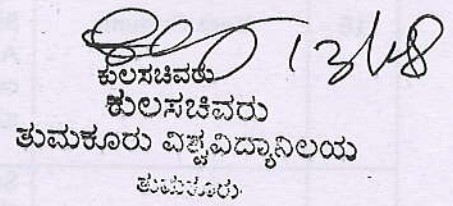 13/48
ಕುಲಸಚಿವರು
ಕುಲಸಚಿವರು
ತುಮಕೂರು ವಿಶ್ವವಿದ್ಯಾನಿಲಯ
ತುಮಕೂರು